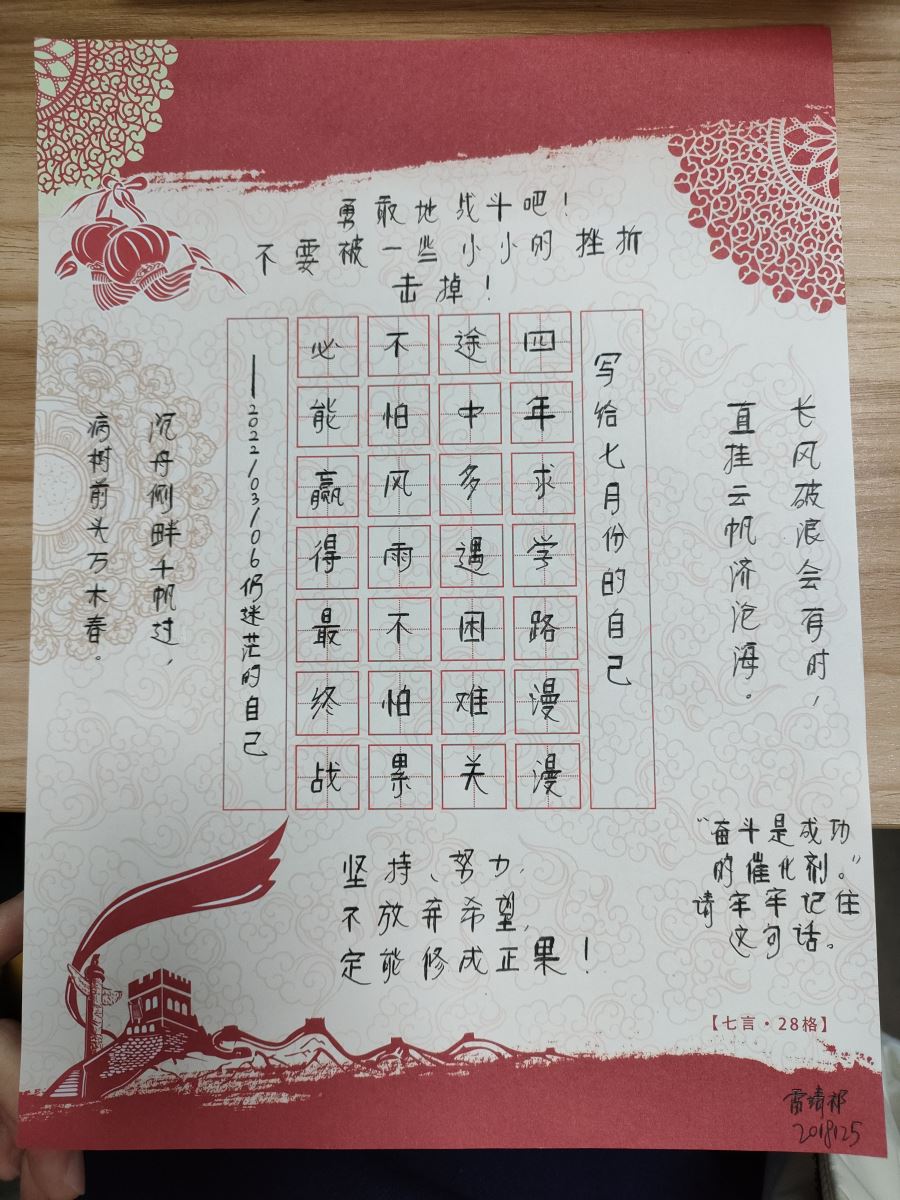 勇敢地战斗吧！
不要被一些小小的挫折
击掉！
长风破浪会有时，
直挂云帆济沧海。
写给七月份的自己
四年求学路漫漫
途中多遇困难关
不怕风雨不怕累
必能赢得最终战
——2022/03/06仍迷茫的自己
沉舟侧畔千帆过，
病树前头万木春。
坚持、努力，
不放弃希望，
定能修成正果！
“奋斗是成功
的催化剂。”
请牢牢记住
这句话。
【七言·28格】
2018125